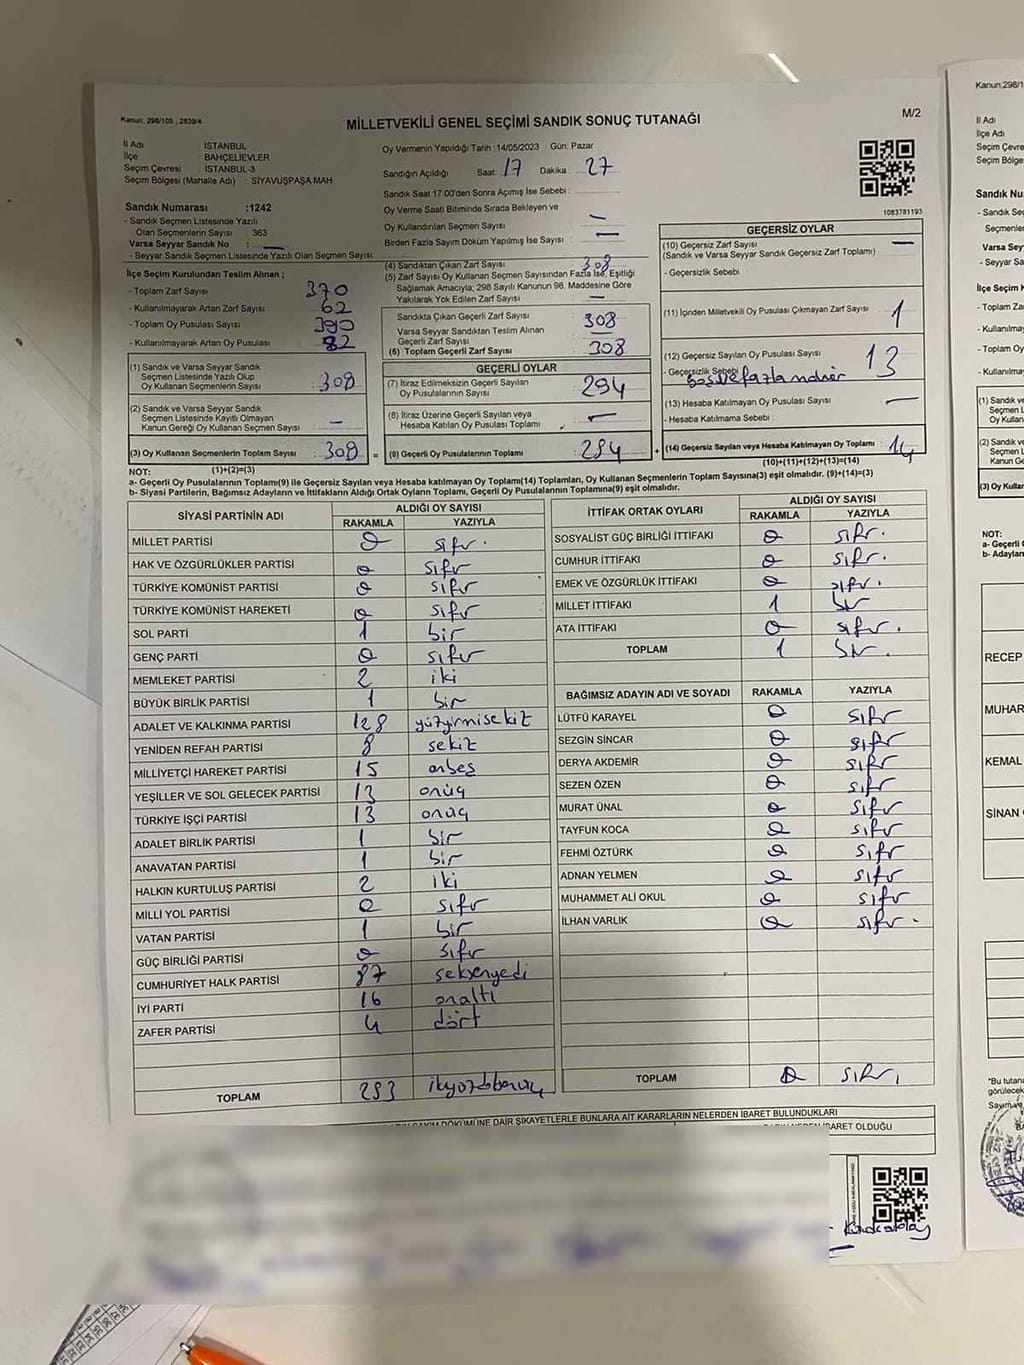 Kanun: 298/105 , 2839/4
MİLLETVEKİLİ GENEL SEÇİMİ SANDIK SONUÇ TUTANAĞI
M/2
İl Adı : İSTANBUL
İlçe : BAHÇELİEVLER
Seçim Çevresi : İSTANBUL-3
Seçim Bölgesi (Mahalle Adı) : SİYAVUŞPAŞA MAH.
Oy Vermenin Yapıldığı Tarih :14/05/2023 Gün: Pazar
Sandığın Açıldığı Saat: 17 Dakika : 27
Sandık Saat 17:00'den Sonra Açımış İse Sebebi :
Oy Verme Saati Bitiminde Sırada Bekleyen ve
Oy Kullandırılan Seçmen Sayısı : —
Birden Fazla Sayım Döküm Yapılmış İse Sayısı : —
1083781193
Sandık Numarası :1242
- Sandık Seçmen Listesinde Yazılı
Olan Seçmenlerin Sayısı : 363
Varsa Seyyar Sandık No : —
- Seyyar Sandık Seçmen Listesinde Yazılı Olan Seçmen Sayısı:
İlçe Seçim Kurulundan Teslim Alınan ;
- Toplam Zarf Sayısı : 370
- Kullanılmayarak Artan Zarf Sayısı : 62
- Toplam Oy Pusulası Sayısı : 390
- Kullanılmayarak Artan Oy Pusulası : 82
(1) Sandık ve Varsa Seyyar Sandık
Seçmen Listesinde Yazılı Olup
Oy Kullanan Seçmenlerin Sayısı : 308
(2) Sandık ve Varsa Seyyar Sandık
Seçmen Listesinde Kayıtlı Olmayan
Kanun Gereği Oy Kullanan Seçmen Sayısı : —
(3) Oy Kullanan Seçmenlerin Toplam Sayısı : 308 =
(4) Sandıktan Çıkan Zarf Sayısı : 308
(5) Zarf Sayısı Oy Kullanan Seçmen Sayısından Fazla İse, Eşitliği
Sağlamak Amacıyla; 298 Sayılı Kanunun 98. Maddesine Göre
Yakılarak Yok Edilen Zarf Sayısı : —
Sandıkta Çıkan Geçerli Zarf Sayısı : 308
Varsa Seyyar Sandıktan Teslim Alınan
Geçerli Zarf Sayısı : —
(6) Toplam Geçerli Zarf Sayısı : 308
GEÇERLİ OYLAR
(7) İtiraz Edilmeksizin Geçerli Sayılan
Oy Pusulalarının Sayısı : 294
(8) İtiraz Üzerine Geçerli Sayılan veya
Hesaba Katılan Oy Pusulası Toplamı : —
(9) Geçerli Oy Pusulalarının Toplamı : 294 +
GEÇERSİZ OYLAR
(10) Geçersiz Zarf Sayısı : —
(Sandık ve Varsa Seyyar Sandık Geçersiz Zarf Toplamı)
- Geçersizlik Sebebi :
(11) İçinden Milletvekili Oy Pusulası Çıkmayan Zarf Sayısı : 1
(12) Geçersiz Sayılan Oy Pusulası Sayısı : 13
- Geçersizlik Sebebi : boş ve fazla
(13) Hesaba Katılmayan Oy Pusulası Sayısı : —
- Hesaba Katılmama Sebebi :
(14) Geçersiz Sayılan veya Hesaba Katılmayan Oy Toplamı : 14
NOT: (1)+(2)=(3)
(10)+(11)+(12)+(13)=(14)
a- Geçerli Oy Pusulalarının Toplamı(9) ile Geçersiz Sayılan veya Hesaba katılmayan Oy Toplamı(14) Toplamları, Oy Kullanan Seçmenlerin Toplam Sayısına(3) eşit olmalıdır. (9)+(14)=(3)
b- Siyasi Partilerin, Bağımsız Adayların ve İttifakların Aldığı Ortak Oyların Toplamı, Geçerli Oy Pusulalarının Toplamına(9) eşit olmalıdır.
SİYASİ PARTİNİN ADI ALDIĞI OY SAYISI
RAKAMLA YAZIYLA
MİLLET PARTİSİ 0 sıfır.
HAK VE ÖZGÜRLÜKLER PARTİSİ 0 sıfır
TÜRKİYE KOMÜNİST PARTİSİ 0 sıfır
TÜRKİYE KOMÜNİST HAREKETİ 0 sıfır
SOL PARTİ 1 bir
GENÇ PARTİ 0 sıfır
MEMLEKET PARTİSİ 2 iki
BÜYÜK BİRLİK PARTİSİ 1 bir
ADALET VE KALKINMA PARTİSİ 128 yüzyirmisekiz
YENİDEN REFAH PARTİSİ 8 sekiz
MİLLİYETÇİ HAREKET PARTİSİ 15 onbeş
YEŞİLLER VE SOL GELECEK PARTİSİ 13 onüç
TÜRKİYE İŞÇİ PARTİSİ 13 onüç
ADALET BİRLİK PARTİSİ 1 bir
ANAVATAN PARTİSİ 1 bir
HALKIN KURTULUŞ PARTİSİ 2 iki
MİLLİ YOL PARTİSİ 0 sıfır
VATAN PARTİSİ 1 bir
GÜÇ BİRLİĞİ PARTİSİ 0 sıfır
CUMHURİYET HALK PARTİSİ 87 seksenyedi
İYİ PARTİ 16 onaltı
ZAFER PARTİSİ 4 dört
TOPLAM 293
İTTİFAK ORTAK OYLARI ALDIĞI OY SAYISI
RAKAMLA YAZIYLA
SOSYALİST GÜÇ BİRLİĞİ İTTİFAKI 0 sıfır.
CUMHUR İTTİFAKI 0 sıfır.
EMEK VE ÖZGÜRLÜK İTTİFAKI 0 sıfır.
MİLLET İTTİFAKI 1 bir
ATA İTTİFAKI 0 sıfır.
TOPLAM 1 bir.
BAĞIMSIZ ADAYIN ADI VE SOYADI RAKAMLA YAZIYLA
LÜTFÜ KARAYEL 0 sıfır
SEZGİN SİNCAR 0 sıfır
DERYA AKDEMİR 0 sıfır
SEZEN ÖZEN 0 sıfır
MURAT ÜNAL 0 sıfır
TAYFUN KOCA 0 sıfır
FEHMİ ÖZTÜRK 0 sıfır
ADNAN YELMEN 0 sıfır
MUHAMMET ALİ OKUL 0 sıfır
İLHAN VARLIK 0 sıfır.
TOPLAM 0 sıfır
DÖKÜMÜNE DAİR ŞİKAYETLERLE BUNLARA AİT KARARLARIN NELERDEN İBARET BULUNDUKLARI
İBARET OLDUĞU
Kanun:298/1
İl Adı
İlçe Adı
Seçim Çevre
Seçim Bölge
Sandık Nu
- Sandık Seç
Seçmenler
Varsa Sey
- Seyyar Sa
İlçe Seçim
- Toplam Za
- Kullanılma
- Toplam Oy
- Kullanılma
(1) Sandık ve
Seçmen L
Oy Kullan
(2) Sandık ve
Seçmen
Kanun Ge
(3) Oy Kullar
NOT:
a- Geçerli O
b- Adayların
RECEP
MUHAR
KEMAL
SİNAN
"Bu tutana
görülecek
Sayım ve